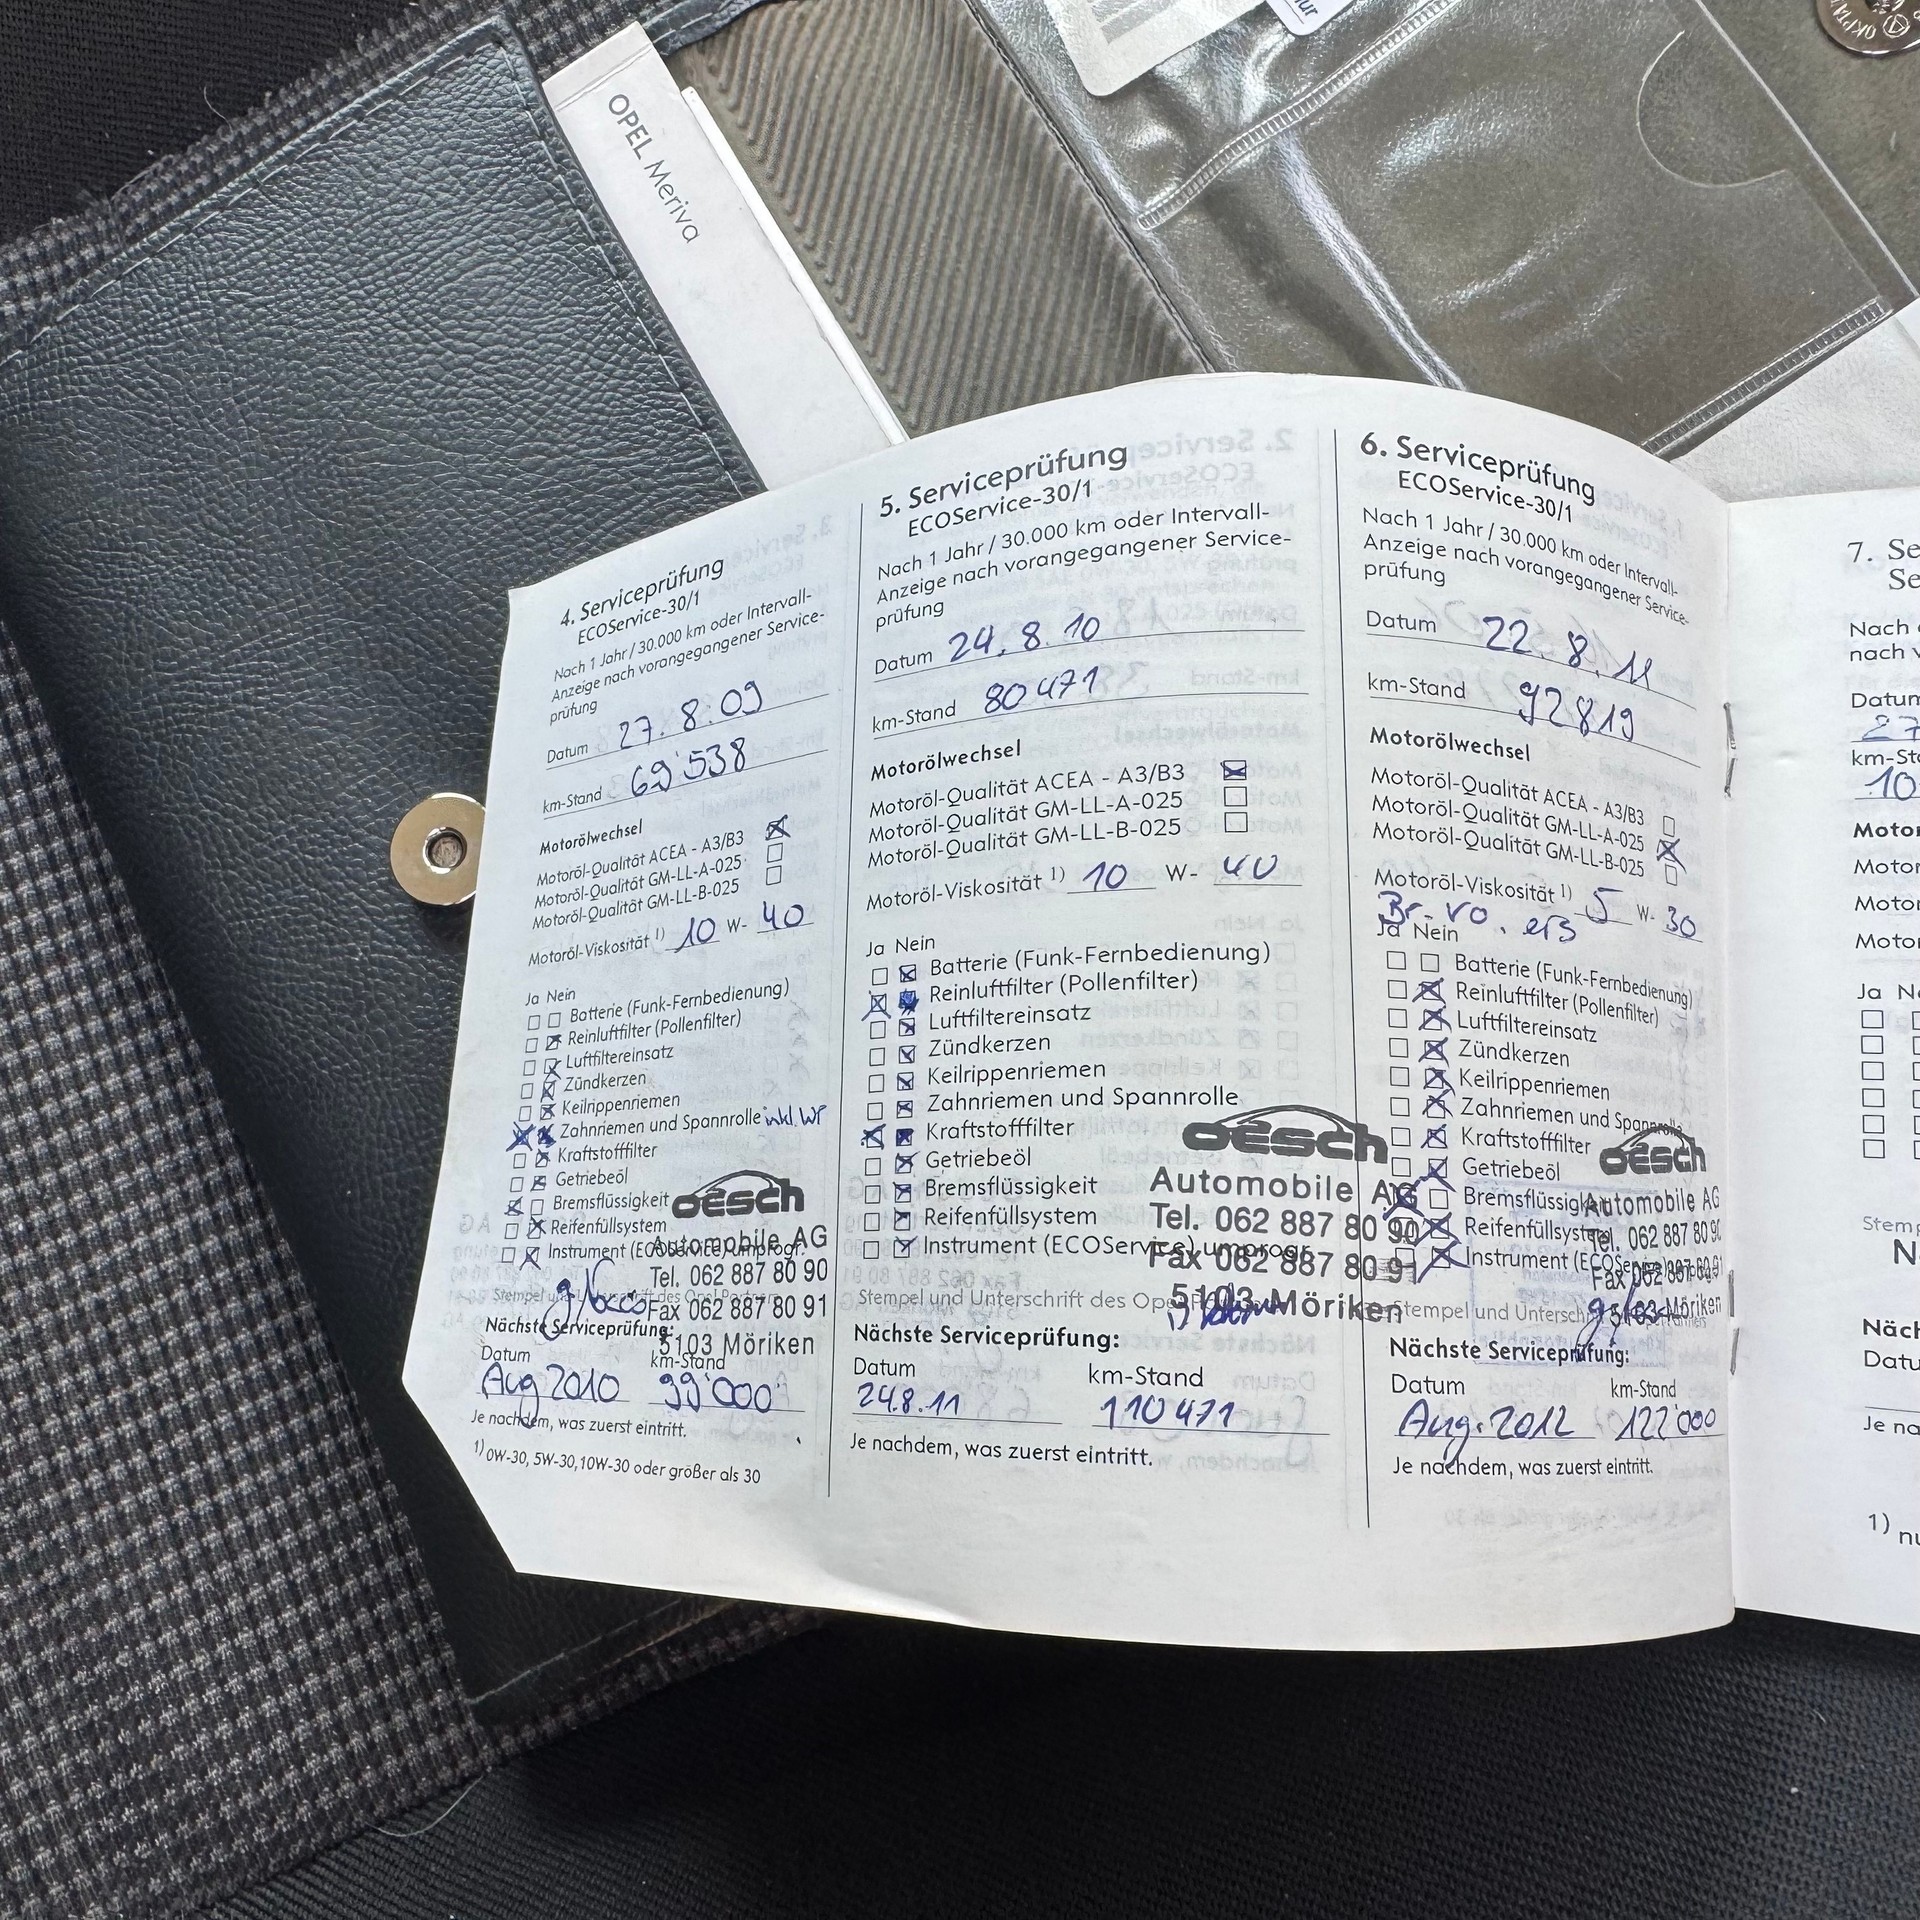 OPEL Meriva
4. Serviceprüfung
ECOService-30/1
Nach 1 Jahr / 30.000 km oder Intervall-
Anzeige nach vorangegangener Service-
prüfung
Datum 27.8.09
km-Stand 69'538
Motorölwechsel
Motoröl-Qualität ACEA - A3/B3
Motoröl-Qualität GM-LL-A-025
Motoröl-Qualität GM-LL-B-025
Motoröl-Viskosität 1) 10 W- 40
Ja Nein
Batterie (Funk-Fernbedienung)
Reinluftfilter (Pollenfilter)
Luftfiltereinsatz
Zündkerzen
Keilrippenriemen
Zahnriemen und Spannrolle inkl. WP
Kraftstofffilter
Getriebeöl
Bremsflüssigkeit
Reifenfüllsystem
Instrument (ECOService) umprogr.
oesch
Automobile AG
Tel. 062 887 80 90
Fax 062 887 80 91
5103 Möriken
Stempel und Unterschrift des Opel Partners
Nächste Serviceprüfung:
Datum km-Stand
Aug 2010 99'000
Je nachdem, was zuerst eintritt.
1) 0W-30, 5W-30, 10W-30 oder größer als 30
5. Serviceprüfung
ECOService-30/1
Nach 1 Jahr / 30.000 km oder Intervall-
Anzeige nach vorangegangener Service-
prüfung
Datum 24.8.10
km-Stand 80471
Motorölwechsel
Motoröl-Qualität ACEA - A3/B3
Motoröl-Qualität GM-LL-A-025
Motoröl-Qualität GM-LL-B-025
Motoröl-Viskosität 1) 10 W- 40
Ja Nein
Batterie (Funk-Fernbedienung)
Reinluftfilter (Pollenfilter)
Luftfiltereinsatz
Zündkerzen
Keilrippenriemen
Zahnriemen und Spannrolle
Kraftstofffilter
Getriebeöl
Bremsflüssigkeit
Reifenfüllsystem
Instrument (ECOService) umprogr.
oesch
Automobile AG
Tel. 062 887 80 90
Fax 062 887 80 91
5103 Möriken
Stempel und Unterschrift des Opel
Nächste Serviceprüfung:
Datum km-Stand
24.8.11 110471
Je nachdem, was zuerst eintritt.
6. Serviceprüfung
ECOService-30/1
Nach 1 Jahr / 30.000 km oder Intervall-
Anzeige nach vorangegangener Service-
prüfung
Datum 22.8.11
km-Stand 92819
Motorölwechsel
Motoröl-Qualität ACEA - A3/B3
Motoröl-Qualität GM-LL-A-025
Motoröl-Qualität GM-LL-B-025
Motoröl-Viskosität 1) 5 W- 30
Br. vo. ers
Ja Nein
Batterie (Funk-Fernbedienung)
Reinluftfilter (Pollenfilter)
Luftfiltereinsatz
Zündkerzen
Keilrippenriemen
Zahnriemen und Spannrolle
Kraftstofffilter
Getriebeöl
Bremsflüssigkeit
Reifenfüllsystem
Instrument
oesch
Automobile AG
Tel. 062 887 80 90
Fax 062 887 80 91
5103 Möriken
Stempel und
Nächste Serviceprüfung:
Datum km-Stand
Aug. 2012 122'000
Je nachdem, was zuerst eintritt.
7. Se
Se
Nach
nach v
Datum
27
km-Sta
10
Motor
Motor
Motor
Motor
Ja Ne
Stemp
N
Näch
Datu
Je na
1) nu